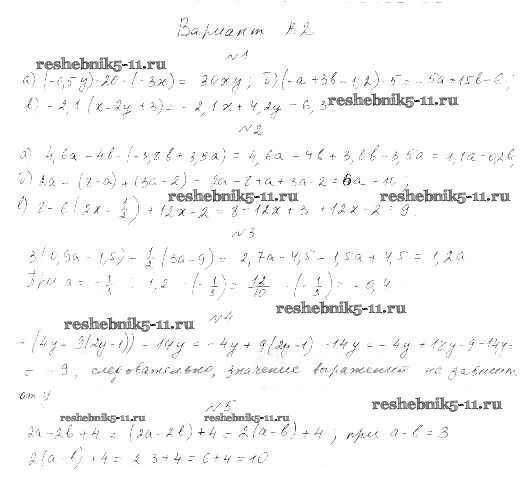 Вариант К.2
№1
reshebnik5-11.ru
а) (-0,5y)·20·(-3x) = 30xy; б) (-a+3b-1,2)·5 = -5a+15b-6;
reshebnik5-11.ru
в) -2,1(x-2y+3) = -2,1x+4,2y-6,3
№2
а) 4,6a-4b-(-3,8b+3,5a) = 4,6a-4b+3,8b-3,5a = 1,1a-0,2b;
б) 2a-(8-a)+(3a-2) = 2a-8+a+3a-2 = 6a-10;
reshebnik5-11.ru reshebnik5-11.ru
в) 8-6(2x-1/2)+12x-2 = 8-12x+3+12x-2 = 9
№3
3(0,9a-1,5)-1/2(3a-9) = 2,7a-4,5-1,5a+4,5 = 1,2a
При a = -1/3 : 1,2·(-1/3) = 12/10·(-1/3) = -0,4
reshebnik5-11.ru
№4
reshebnik5-11.ru
-(4y-9(2y-1))-14y = -4y+9(2y-1)-14y = -4y+18y-9-14y=
= -9, следовательно, значение выражения не зависит
от y
reshebnik5-11.ru
№5
reshebnik5-11.ru reshebnik5-11.ru
2a-2b+4 = (2a-2b)+4 = 2(a-b)+4; при a-b=3
2(a-b)+4 = 2·3+4 = 6+4 = 10